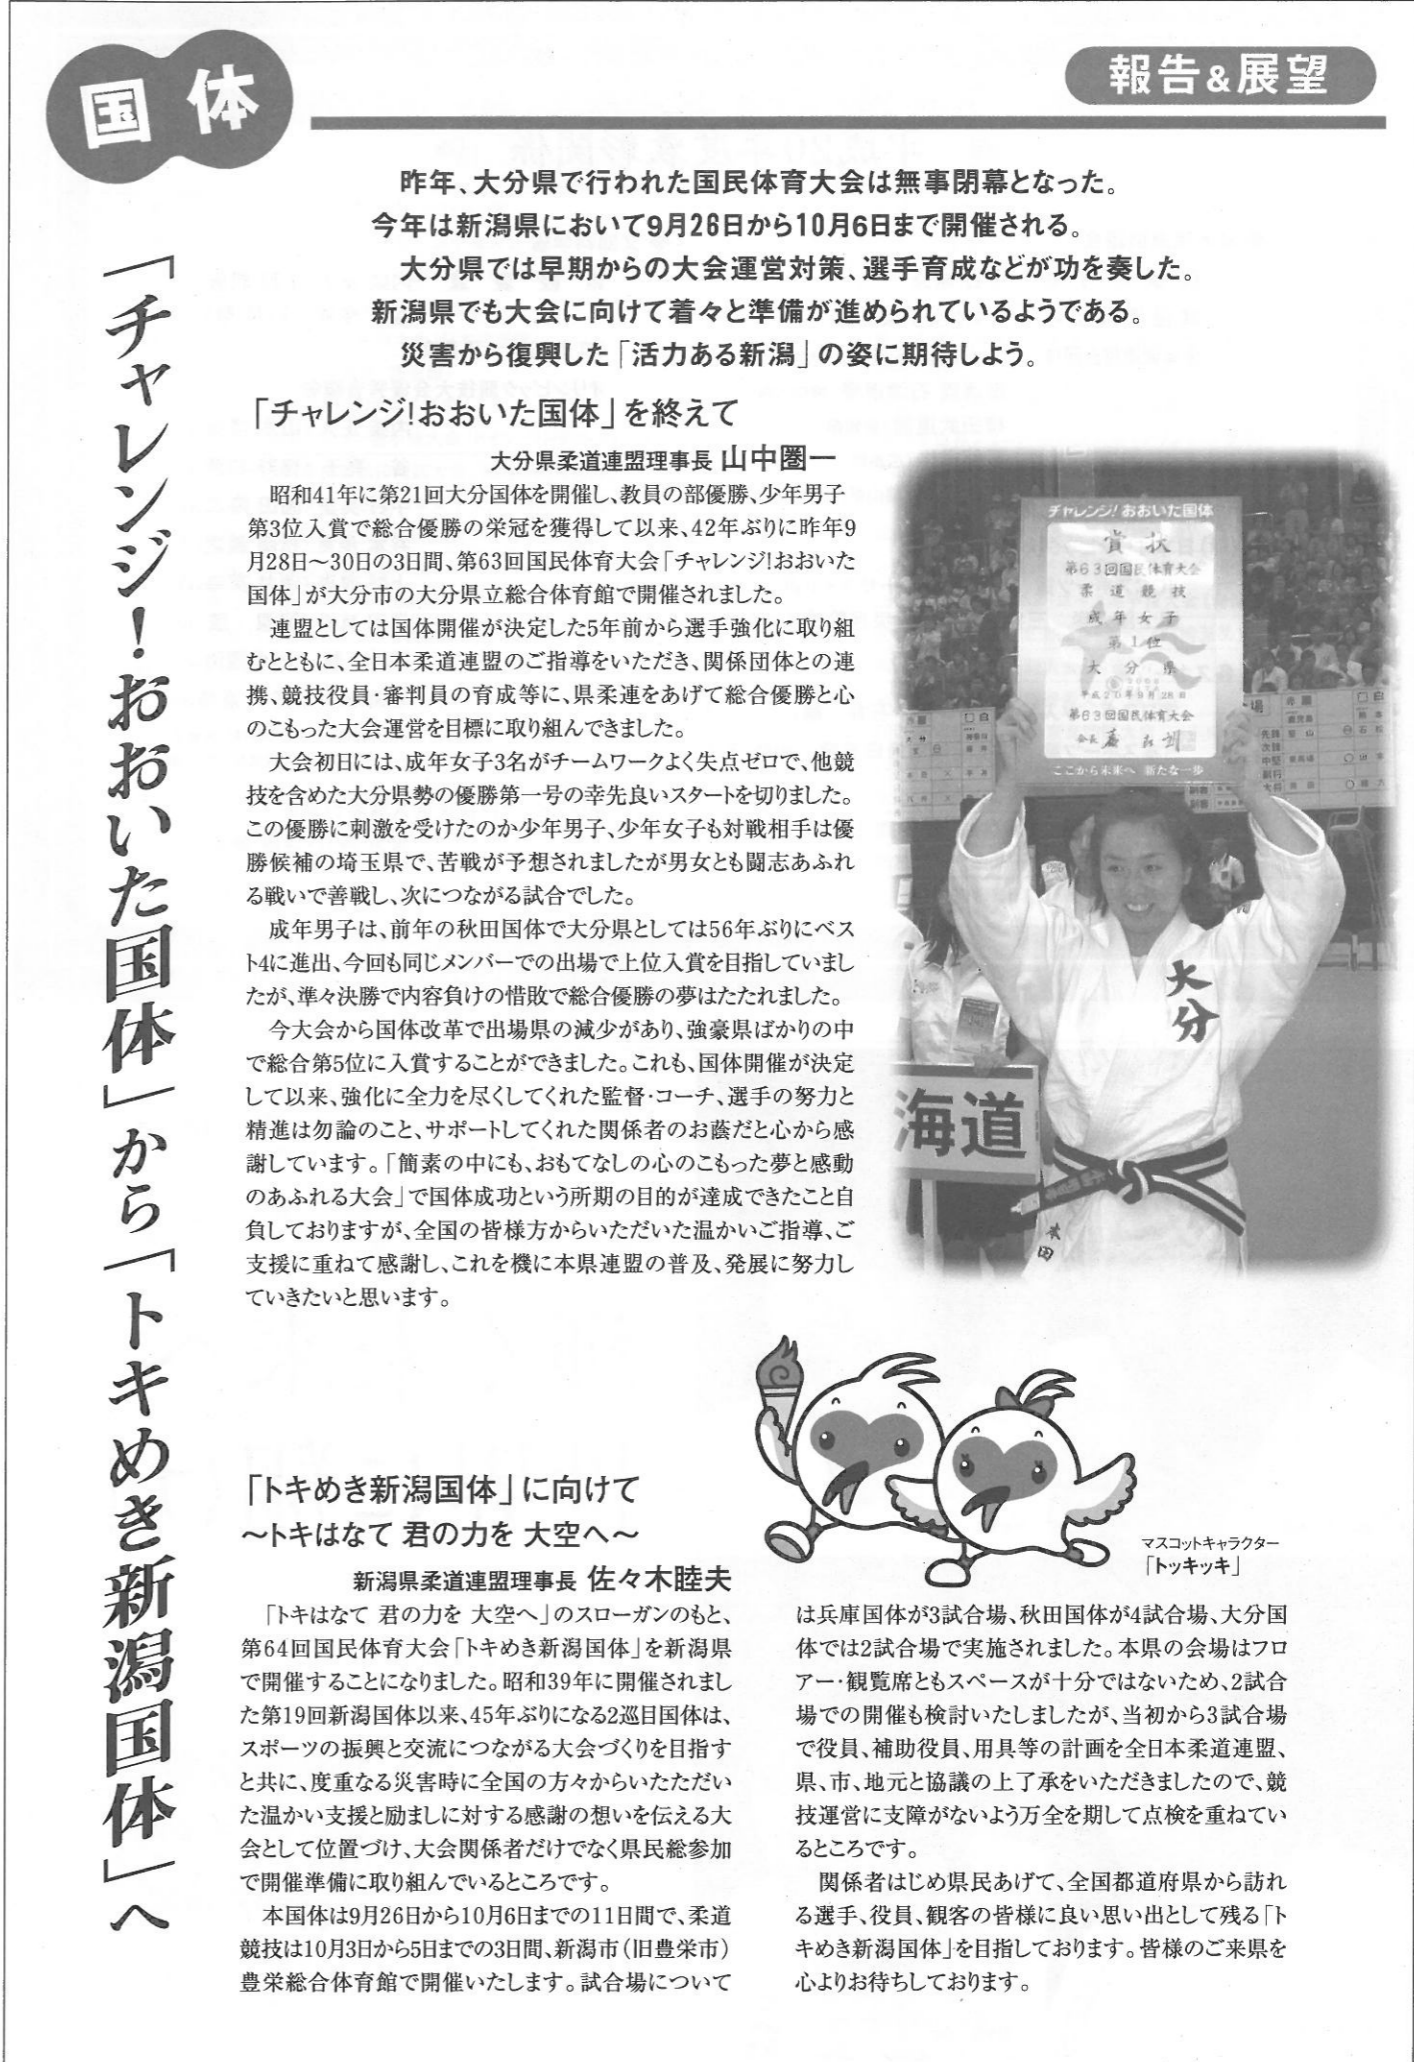 国体
報告&展望
昨年、大分県で行われた国民体育大会は無事閉幕となった。
今年は新潟県において9月26日から10月6日まで開催される。
大分県では早期からの大会運営対策、選手育成などが功を奏した。
新潟県でも大会に向けて着々と準備が進められているようである。
災害から復興した「活力ある新潟」の姿に期待しよう。
「チャレンジ！おおいた国体」から「トキめき新潟国体」へ
「チャレンジ!おおいた国体」を終えて
大分県柔道連盟理事長 山中圏一
昭和41年に第21回大分国体を開催し、教員の部優勝、少年男子
第3位入賞で総合優勝の栄冠を獲得して以来、42年ぶりに昨年9
月28日〜30日の3日間、第63回国民体育大会「チャレンジ!おおいた
国体」が大分市の大分県立総合体育館で開催されました。
連盟としては国体開催が決定した5年前から選手強化に取り組
むとともに、全日本柔道連盟のご指導をいただき、関係団体との連
携、競技役員・審判員の育成等に、県柔連をあげて総合優勝と心
のこもった大会運営を目標に取り組んできました。
大会初日には、成年女子3名がチームワークよく失点ゼロで、他競
技を含めた大分県勢の優勝第一号の幸先良いスタートを切りました。
この優勝に刺激を受けたのか少年男子、少年女子も対戦相手は優
勝候補の埼玉県で、苦戦が予想されましたが男女とも闘志あふれ
る戦いで善戦し、次につながる試合でした。
成年男子は、前年の秋田国体で大分県としては56年ぶりにベス
ト4に進出、今回も同じメンバーでの出場で上位入賞を目指していまし
たが、準々決勝で内容負けの惜敗で総合優勝の夢はたたれました。
今大会から国体改革で出場県の減少があり、強豪県ばかりの中
で総合第5位に入賞することができました。これも、国体開催が決定
して以来、強化に全力を尽くしてくれた監督・コーチ、選手の努力と
精進は勿論のこと、サポートしてくれた関係者のお蔭だと心から感
謝しています。「簡素の中にも、おもてなしの心のこもった夢と感動
のあふれる大会」で国体成功という所期の目的が達成できたこと自
負しておりますが、全国の皆様方からいただいた温かいご指導、ご
支援に重ねて感謝し、これを機に本県連盟の普及、発展に努力し
ていきたいと思います。
チャレンジ! おおいた国体
賞状
第63回国民体育大会
柔道競技
成年女子
第1位
大分県
平成20年9月28日
第63回国民体育大会
会長
ここから未来へ 新たな一歩
大分
海道
本田
「トキめき新潟国体」に向けて
〜トキはなて 君の力を 大空へ〜
新潟県柔道連盟理事長 佐々木睦夫
マスコットキャラクター
「トッキッキ」
「トキはなて 君の力を 大空へ」のスローガンのもと、
第64回国民体育大会「トキめき新潟国体」を新潟県
で開催することになりました。昭和39年に開催されまし
た第19回新潟国体以来、45年ぶりになる2巡目国体は、
スポーツの振興と交流につながる大会づくりを目指す
と共に、度重なる災害時に全国の方々からいたただい
た温かい支援と励ましに対する感謝の想いを伝える大
会として位置づけ、大会関係者だけでなく県民総参加
で開催準備に取り組んでいるところです。
本国体は9月26日から10月6日までの11日間で、柔道
競技は10月3日から5日までの3日間、新潟市（旧豊栄市）
豊栄総合体育館で開催いたします。試合場について
は兵庫国体が3試合場、秋田国体が4試合場、大分国
体では2試合場で実施されました。本県の会場はフロ
アー・観覧席ともスペースが十分ではないため、2試合
場での開催も検討いたしましたが、当初から3試合場
で役員、補助役員、用具等の計画を全日本柔道連盟、
県、市、地元と協議の上了承をいただきましたので、競
技運営に支障がないよう万全を期して点検を重ねてい
るところです。
関係者はじめ県民あげて、全国都道府県から訪れ
る選手、役員、観客の皆様に良い思い出として残る「ト
キめき新潟国体」を目指しております。皆様のご来県を
心よりお待ちしております。